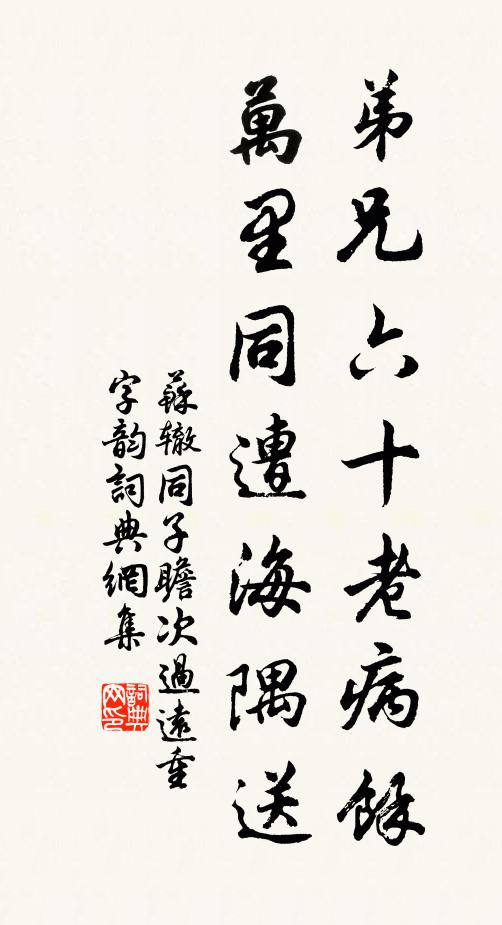 弟兄六十老病餘
萬里同遭海隅送
蘇辙同子瞻次過遠重
字韵詞典網集
詞典
网印